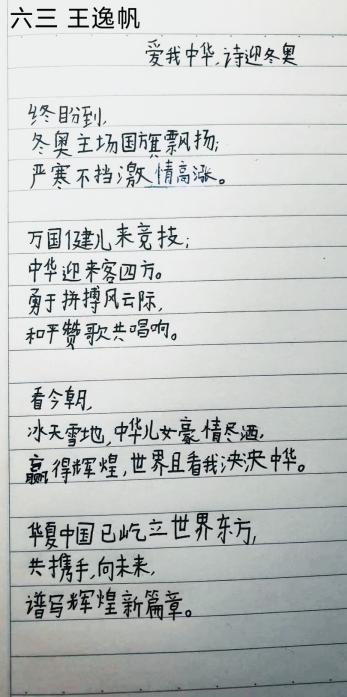 六三 王逸帆
爱我中华,诗迎冬奥
终盼到,
冬奥主场国旗飘扬;
严寒不挡激情高涨。
万国健儿来竞技;
中华迎来客四方。
勇于拼搏风云际,
和平赞歌共唱响。
看今朝,
冰天雪地,中华儿女豪情尽洒,
赢得辉煌,世界且看我泱泱中华。
华夏中国已屹立世界东方,
共携手,向未来,
谱写辉煌新篇章。